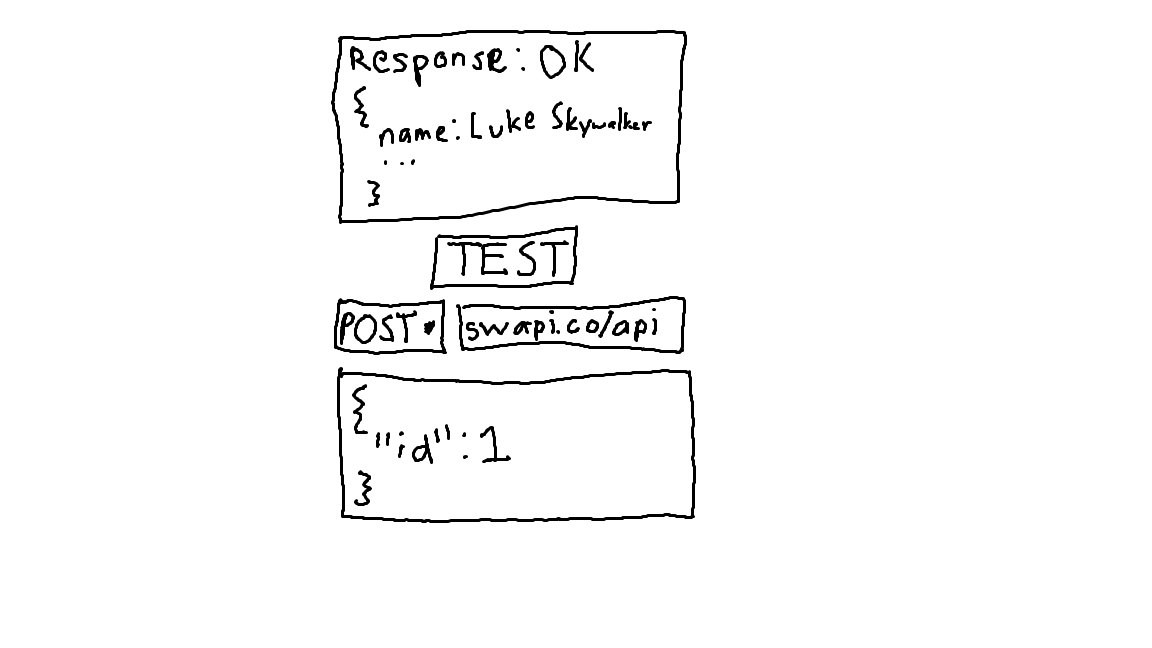 Response: OK
{
name: Luke Skywalker
...
}
TEST
POST swapi.co/api
{
"id": 1
}